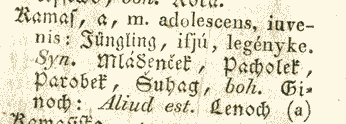 Kamas, a, m. adolescens, iuve-
nis: Jüngling, ifjú, legényke.
Syn. Mládenček, Pacholek,
Parobek, Šuhag, boh. Gi-
noch: Aliud est. Lenoch (a)